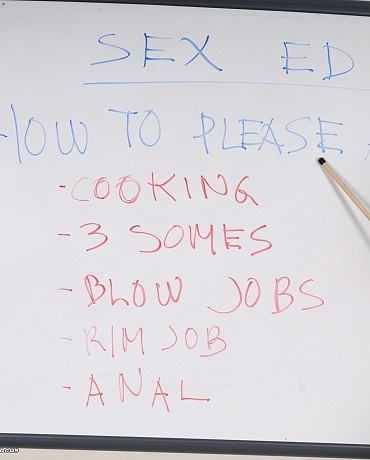 SEX ED
HOW TO PLEASE
- COOKING
- 3 SOMES
- BLOW JOBS
- RIM JOB
- ANAL